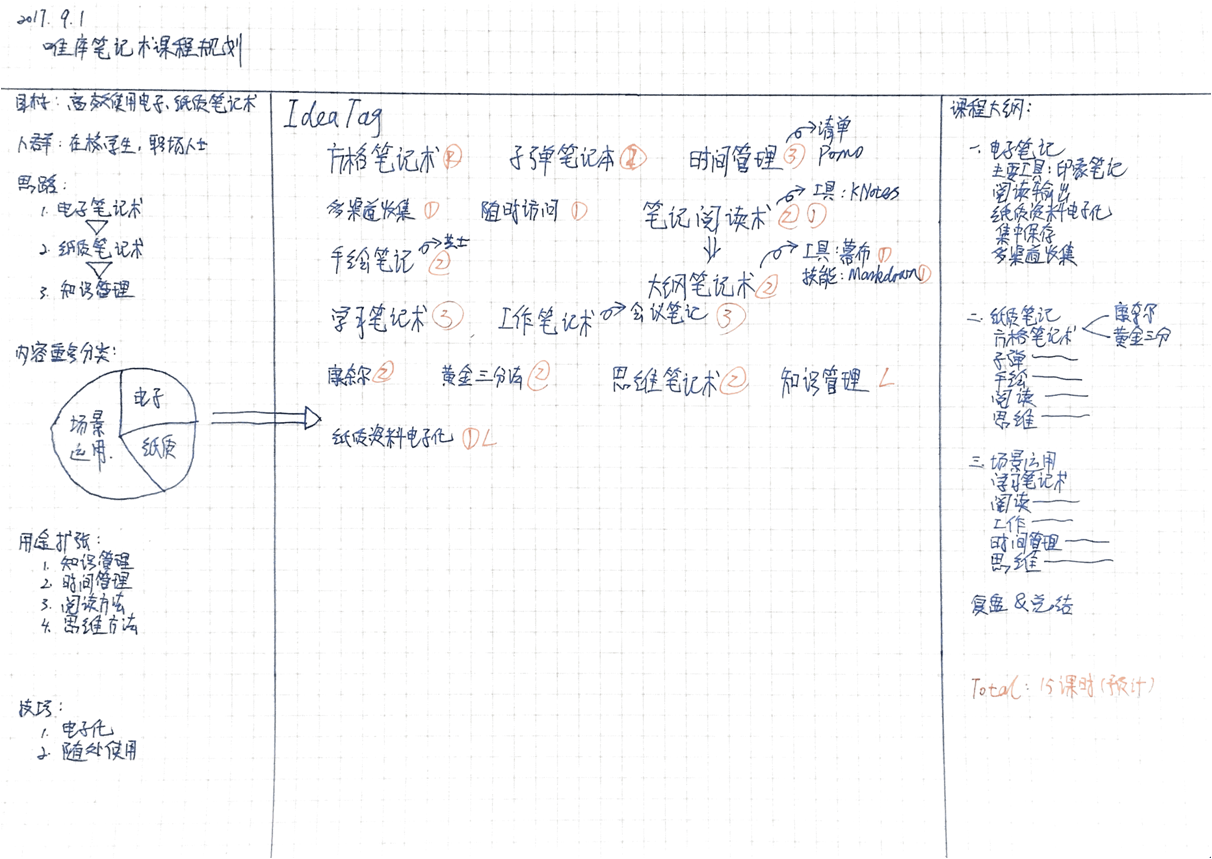 2017.9.1
唯库笔记术课程规划
目标：高效使用电子、纸质笔记术
人群：在校学生，职场人士
思路：
1. 电子笔记术
2. 纸质笔记术
3. 知识管理
内容重点分类：
电子
场景运用.
纸质
用途扩张：
1. 知识管理
2. 时间管理
3. 阅读方法
4. 思维方法
技巧：
1. 电子化
2. 随处使用
IdeaTag
方格笔记术② 子弹笔记本② 时间管理③ 清单
Pomo
多渠道收集① 随时访问① 笔记阅读术②① 工具：KNotes
手绘笔记②
大纲笔记术② 工具：幕布①
技能：Markdown①
学习笔记术③ 工作笔记术 会议笔记③
康奈尔② 黄金三分法② 思维笔记术② 知识管理 L
纸质资料电子化①L
课程大纲：
一. 电子笔记
主要工具：印象笔记
阅读并输出
纸质资料电子化
集中保存
多渠道收集
二. 纸质笔记
方格笔记术 康奈尔
黄金三分
子弹——
手绘——
阅读——
思维——
三. 场景运用
学习笔记术
阅读——
工作——
时间管理——
思维——
复盘 & 总结
Total：15课时(预计)